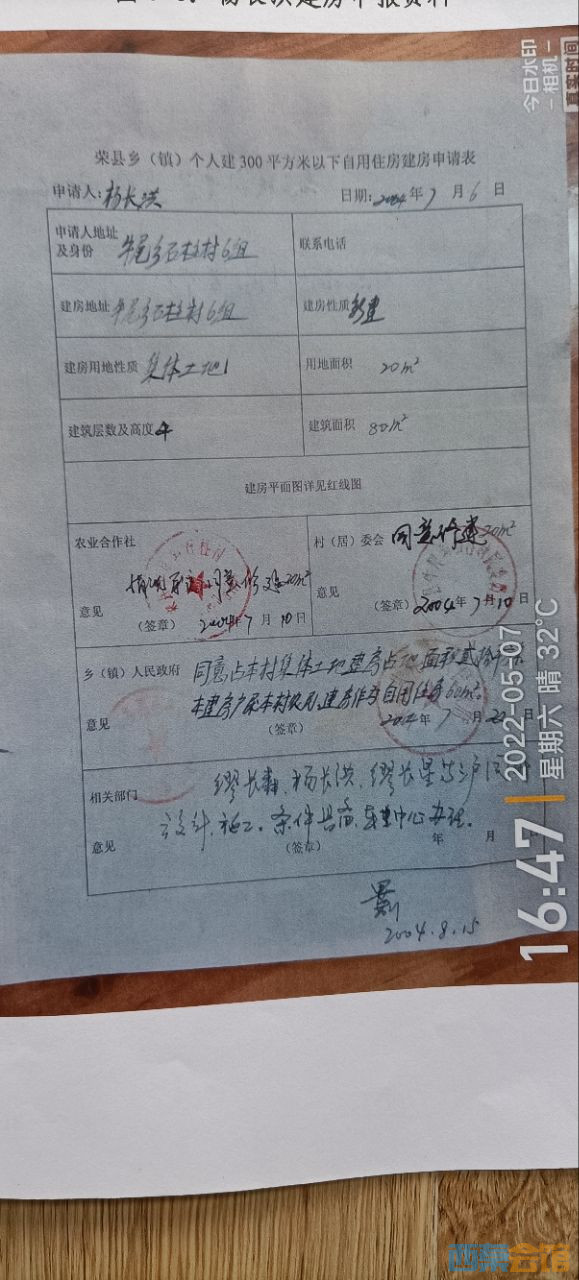 荣县乡（镇）个人建300平方米以下自用住房建房申请表
申请人：杨长洪 日期：2004年7月6日
申请人地址及身份 牛尾乡石柱村6组 联系电话
建房地址 牛尾乡石柱村6组 建房性质 新建
建房用地性质 集体土地 用地面积 20m²
建筑层数及高度 4 建筑面积 80m²
建房平面图详见红线图
农业合作社 同意修建20m² 村（居）委会 同意修建20m²
意见 （签章） 2004年7月10日 意见 （签章） 2004年7月10日
乡（镇）人民政府 同意占本村集体土地建房占地面积贰拾
本建房户系本村农民，建房作为自用住房60m²。
意见 （签章） 2004年7月22日
相关部门 缪长春、杨长洪、缪长星等三户
设计、施工。条件具备，中心办理。
意见 （签章） 年 月
2004.8.15
今日水印
-相机-
真实时间
16:47
2022-05-07
星期六 晴 32℃
西蜀会馆